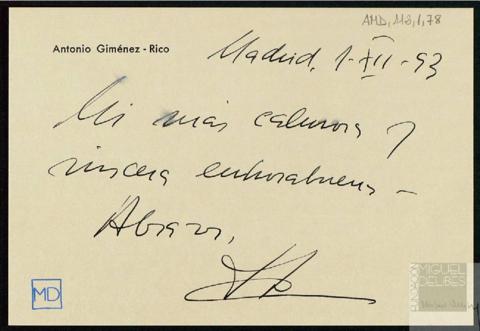 AMD, 118, 1, 78
Antonio Giménez - Rico
Madrid, 1-XII-93
Mi más calurosa y
sincera enhorabuena -
Abrazos,
MD
FUNDACIÓN
MIGUEL
DELIBES